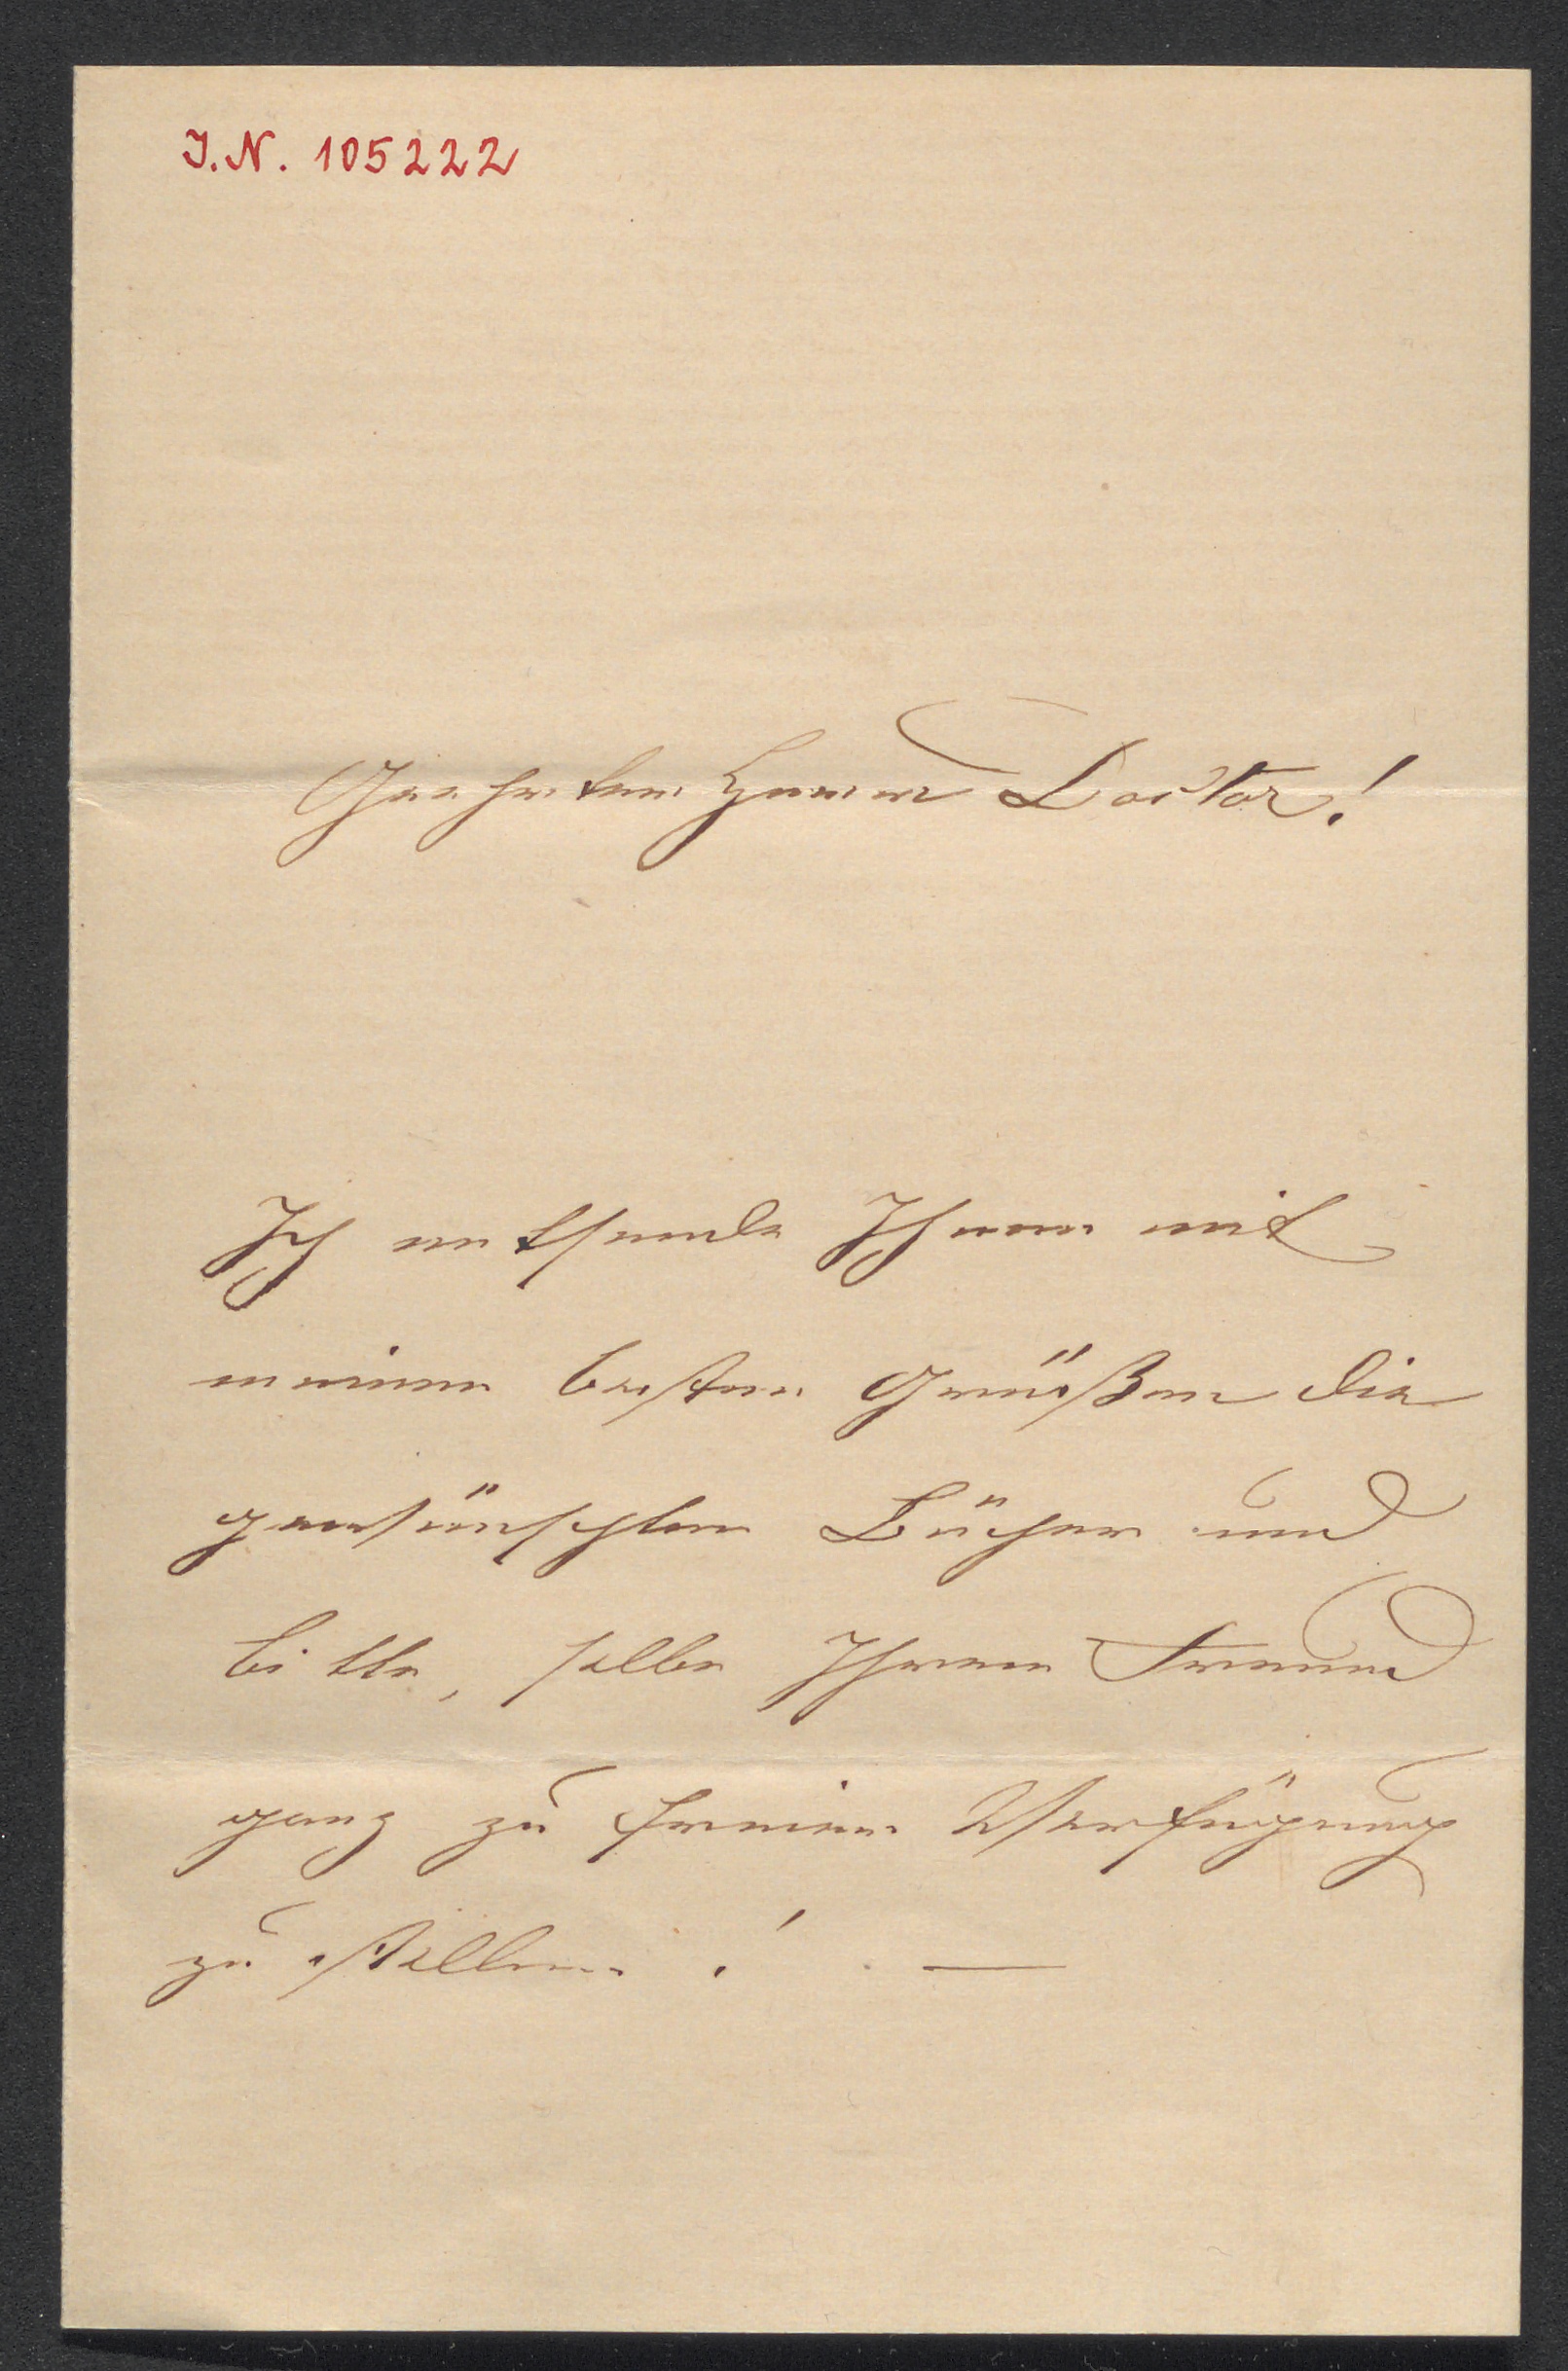 I.N. 105222
Geehrter Herr Doctor!
Ich entsende Ihnen mit
meinen besten Grüßen die
gewünschten Bücher und
bitte, selbe Ihrem Freund
ganz zu freien Verfügung
zu stellen! —